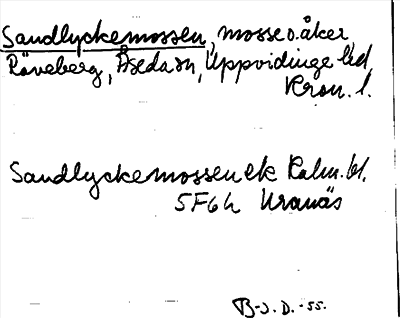 Sandlyckemossen, mosse o. åker
Räveberg, Åseda sn, Uppvidinge hd,
Kron. l.
Sandlyckemossen ek Kalm. bl.
5F6h Uranäs
B-J. D. -55.